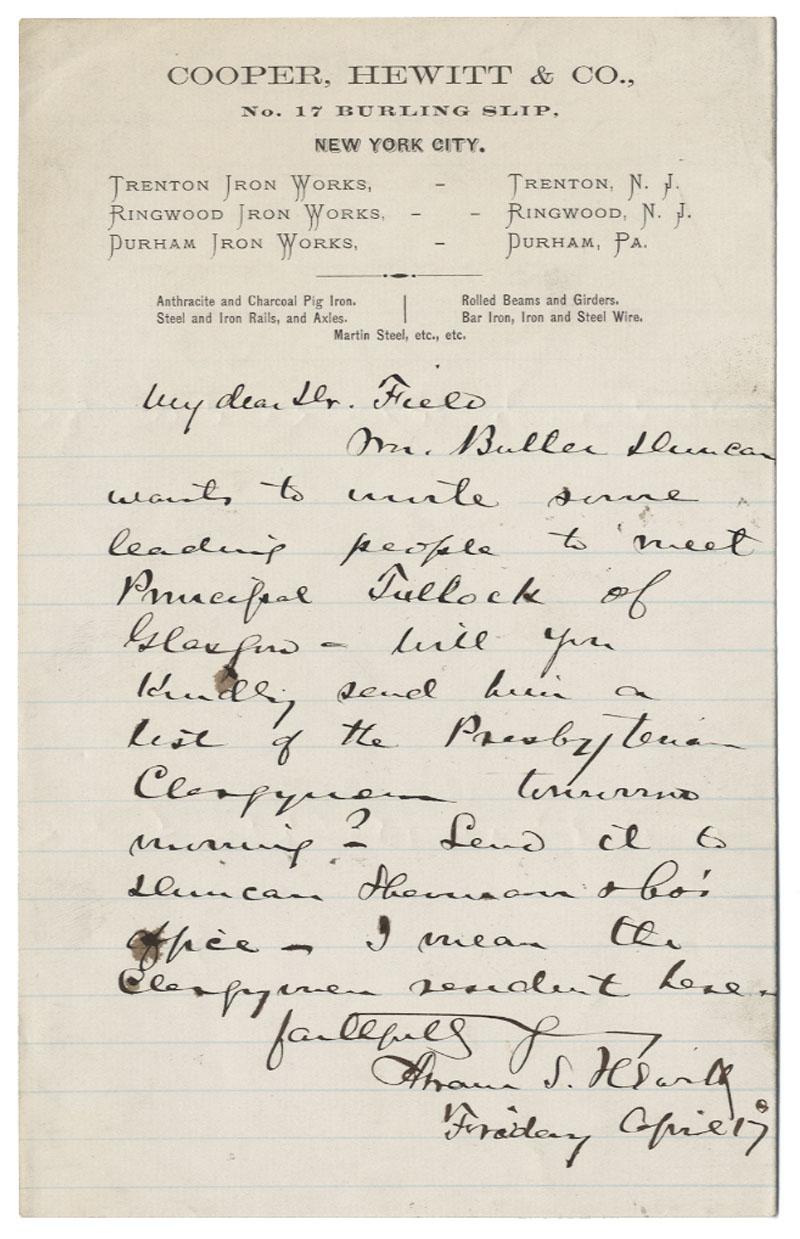 COOPER, HEWITT & CO.,
No. 17 BURLING SLIP,
NEW YORK CITY.
TRENTON IRON WORKS, - TRENTON, N. J.
RINGWOOD IRON WORKS, - - RINGWOOD, N. J.
DURHAM IRON WORKS, - DURHAM, PA.
Anthracite and Charcoal Pig Iron. | Rolled Beams and Girders.
Steel and Iron Rails, and Axles. | Bar Iron, Iron and Steel Wire.
Martin Steel, etc., etc.
My dear Dr. Field
Wm. Butler Duncan
wants to invite some
leading people to meet
Principal Tullock of
Glasgow - will you
Kindly send him a
list of the Presbyterian
Clergymen tomorrow
morning? - Send it to
Duncan Sherman & Co's
office - I mean the
Clergymen resident here -
faithfully
Abram S. Hewitt
Friday April 17